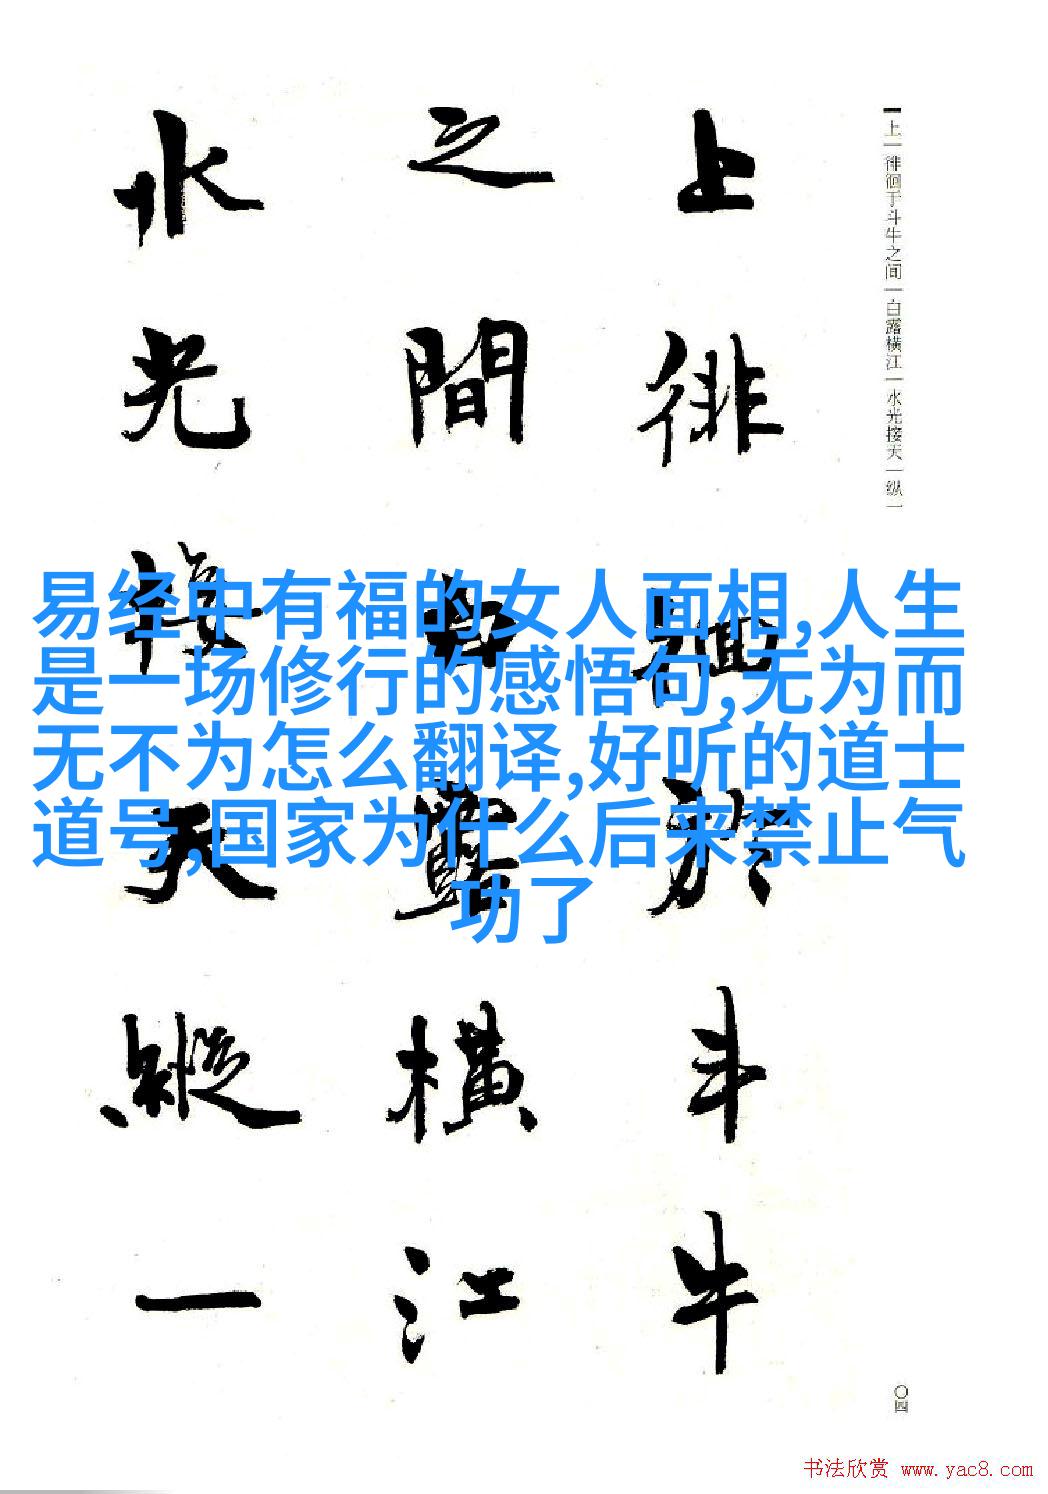 上徘徊於斗牛
之間白露橫江
水光接天縱一
上｜徘徊于斗牛之间｜白露横江｜水光接天｜纵一
易经中有福的女人面相,人生
是一场修行的感悟句,无为而
无不为怎么翻译,好听的道士
道号,国家为什么后来禁止气
功了
〇四
书法欣赏 www.yac8.com